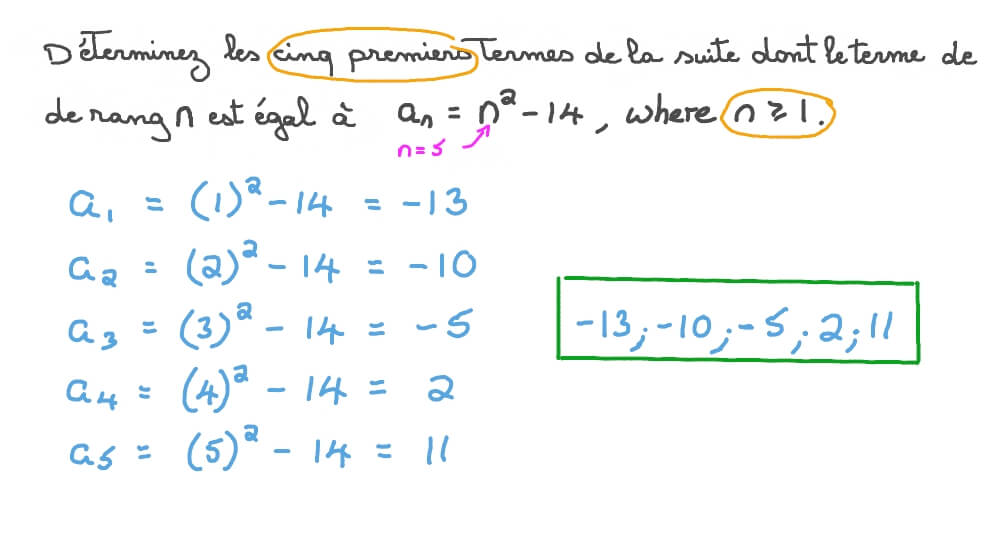 Déterminez les cinq premiers termes de la suite dont le terme de
de rang n est égal à aₙ = n² - 14, where n ≥ 1.
n = 5
a₁ = (1)² - 14 = -13
a₂ = (2)² - 14 = -10
a₃ = (3)² - 14 = -5
-13; -10; -5; 2; 11
a₄ = (4)² - 14 = 2
a₅ = (5)² - 14 = 11